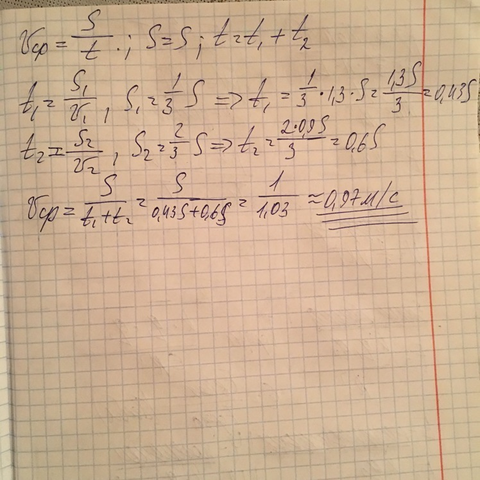 Vср = S/t .; S=S; t=t₁+t₂
t₁ = S₁/V₁, S₁ = 1/3 S => t₁ = 1/3 · 1,3 · S = 1,3S/3 = 0,43S
t₂ = S₂/V₂, S₂ = 2/3 S => t₂ = 2·0,9S/3 = 0,6S
Vср = S/(t₁+t₂) = S/(0,43S+0,6S) = 1/1,03 ≈ 0,97м/с